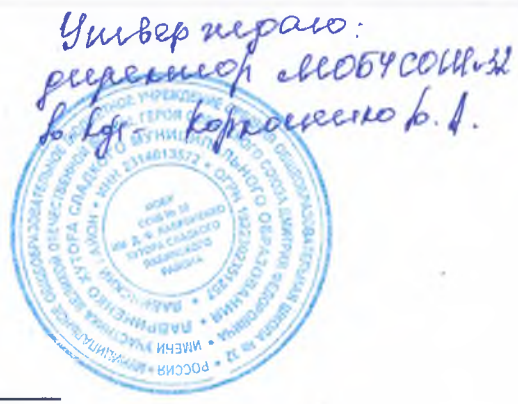 Утверждаю:
директор МОБУСОШ№32
Корнаценко В. А.
МУНИЦИПАЛЬНОЕ ОБЩЕОБРАЗОВАТЕЛЬНОЕ БЮДЖЕТНОЕ УЧРЕЖДЕНИЕ СРЕДНЯЯ ОБЩЕОБРАЗОВАТЕЛЬНАЯ ШКОЛА № 32 • РОССИЯ •
ИМЕНИ УЧАСТНИКА ВЕЛИКОЙ ОТЕЧЕСТВЕННОЙ ГЕРОЯ СОЮЗА ДМИТРИЯ ФЕДОРОВИЧА
ЛАВРИНЕНКО ХУТОРА СЛАДКОГО МУНИЦИПАЛЬНОГО ОБРАЗОВАНИЯ
РАЙОН • ИНН 2314013572 • ОГРН
МОБУ
СОШ № 32
ИМ. Д. Ф. ЛАВРИНЕНКО
ХУТОРА СЛАДКОГО
ЛАБИНСКОГО
РАЙОНА